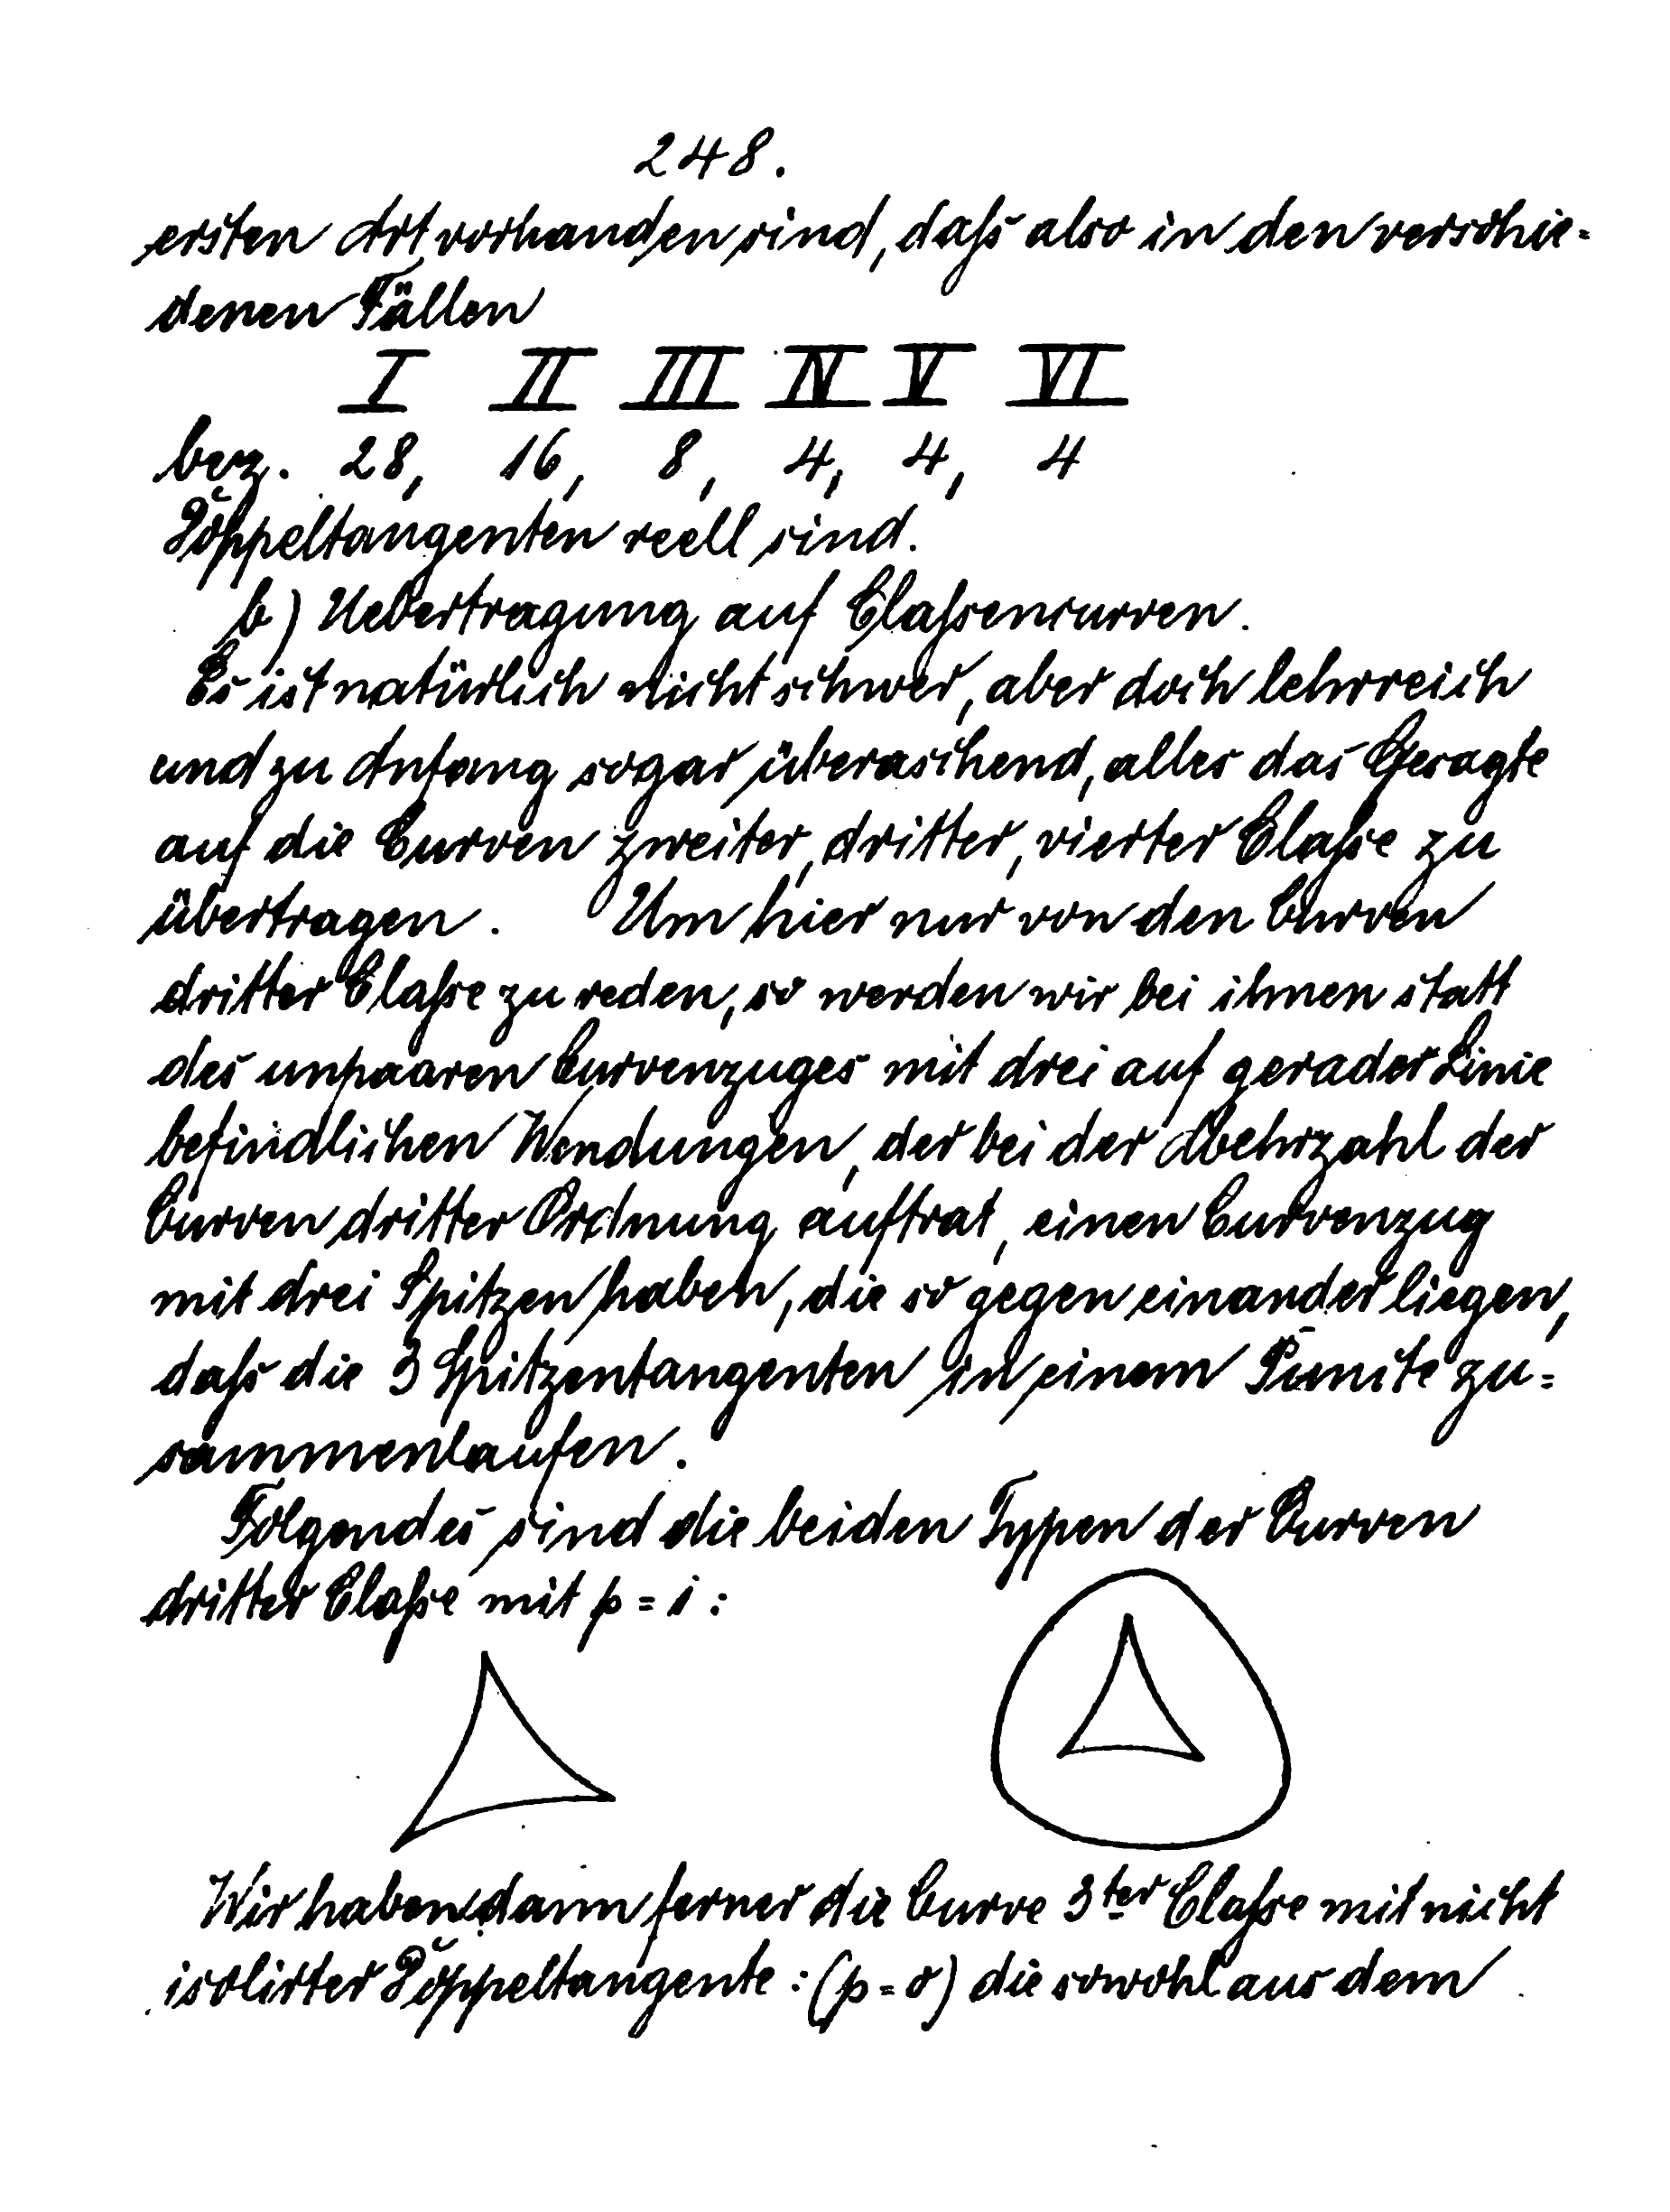 248.
ersten Art vorhanden sind, daſs also in den verschie-
denen Fällen
I II III IV V VI
bez. 28, 16, 8, 4, 4, 4
Doppeltangenten reell sind.
b) Uebertragung auf Claſsencurven.
Es ist natürlich nicht schwer, aber doch lehrreich
und zu Anfang sogar überaschend, alles das Gesagte
auf die Curven zweiter, dritter, vierter Claſse zu
übertragen. Um hier nur von den Curven
dritter Claſse zu reden, so werden wir bei ihnen statt
des unpaaren Curvenzuges mit drei auf gerader Linie
befindlichen Wendungen, der bei der Mehrzahl der
Curven dritter Ordnung auftrat, einen Curvenzug
mit drei Spitzen haben, die so gegen einander liegen,
daſs die 3 Spitzentangenten in einem Puncte zu-
sammenlaufen.
Folgendes sind die beiden Typen der Curven
dritter Claſse mit p = 1:
Wir haben dann ferner die Curve 3ter Claſse mit nicht
isolirter Doppeltangente: (p = 0) die sowohl aus dem